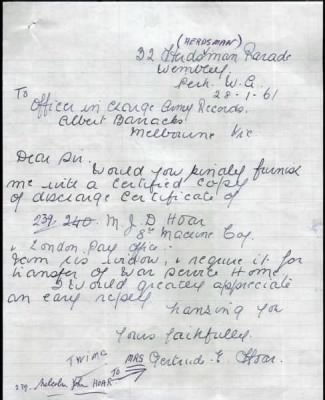 (HERDSMAN)
32 Herdsman Parade
Wembley
Perth. W.A.
28-1-61
To
Officer in charge Army Records.
Albert Barracks
Melbourne Vic.
Dear Sir.
Would you kindly furnish
me with a certified copy
of discharge certificate of
239. 240. M J D Hoar
8th Machine Coy.
& London Pay Office.
I am his widow, & require it for
transfer of War Service Home
I would greatly appreciate
an early reply.
Thanking you
Yours faithfully.
MRS Gertrude. E. Hoar.
TO
239. Malcolm John HOAR